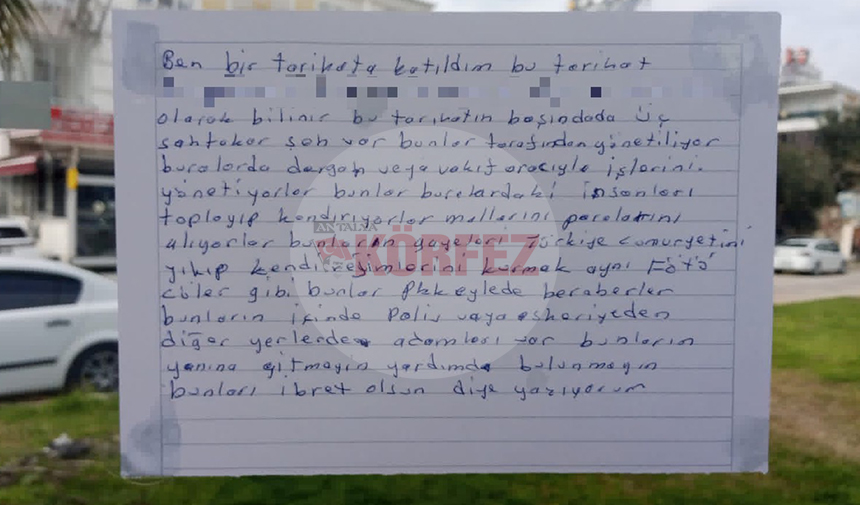 Ben bir tarikata katıldım bu tarihat
olarak bilinir bu tarikatın başındada üç
sahtakar şeh var bunlar tarafından yönetiliyor
buralarda dergah veya vakıf aracıyla işlerini.
yönetiyorlar bunlar buralardaki insanları
toplayıp kandırıyorlar mallarını paralarını
alıyorlar bunların gayeleri Türkiye cumuryetini
yıkıp kendi rejimlerini kurmak aynı Fötö
cüler gibi bunlar Pkkeylede beraberler
bunların içinde Polis vaya askeriyeden
diğer yerlerden adamları var bunların
yanına gitmayin yardımda bulunmayın
bunları ibret olsun diye yazıyorum
ANTALYA
KÖRFEZ